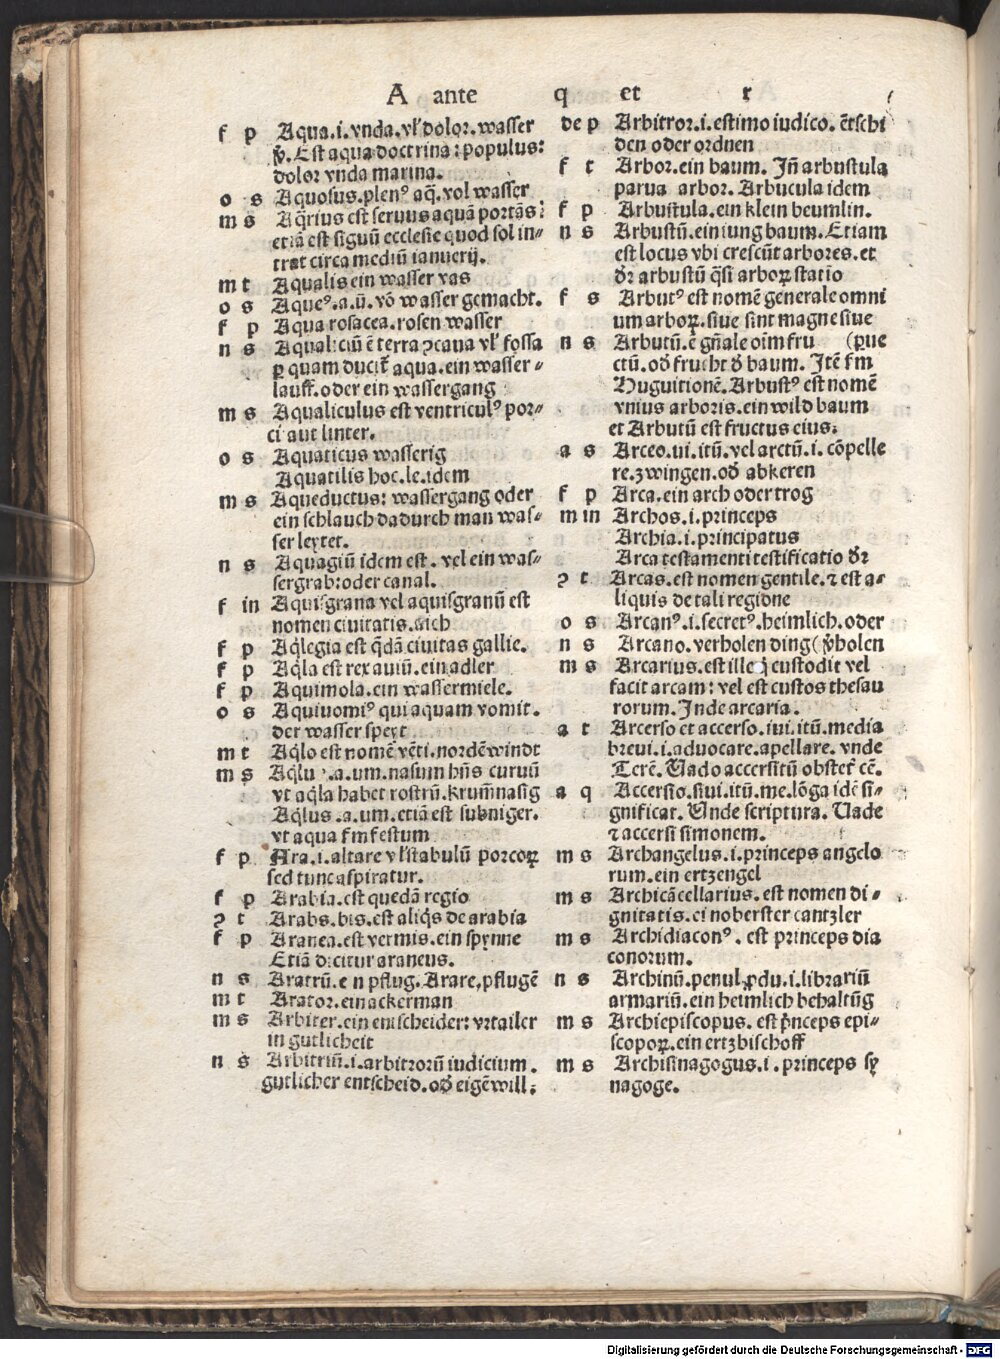 A ante q et r
f p Aqua.i.vnda.vl' dolor.wasser
ꝟ. Est aqua doctrina: populus:
dolor vnda marina.
o s Aquosus.plenꝰ aq̄.vol wasser
m s Aq̄rius est seruus aquā portās:
etiā est signū ecclesie quod sol in⸗
trat circa mediū ianuerij.
m t Aqualis ein wasser vas
o s Aqueꝰ.a.ū.vō wasser gemacht.
f p Aqua rosacea.rosen wasser
n s Aqual:ciū ē terra ꝯcaua vl' fossa
ꝑ quam ducit̄ aqua.ein wasser⸗
lauff.oder ein wassergang
m s Aqualiculus est ventriculꝰ por⸗
ci aut linter.
o s Aquaticus wasserig
Aquatilis hoc.le.idem
m s Aqueductus: wassergang oder
ein schlauch dadurch man was⸗
ser leytet.
n s Aquagiū idem est. vel ein was⸗
sergrab:oder canal.
f in Aquisgrana vel aquisgranū est
nomen ciuitatis.aich
f p Aq̇legia est q̄dā ciuitas gallie.
f p Aq̇la est rex auiū.ein adler
f p Aquimola.ein wassermiele.
o s Aquiuomiꝰ qui aquam vomit.
der wasser speyt
m t Aq̇lo est nomē vēti.nordēwindt
m s Aq̇lu .a.um.nasum hn̄s curuū
vt aq̇la habet rostrū.krum̄nasig
Aq̇lus.a.um.etiā est subniger.
vt aqua fm festum
f p Ara.i.altare vl' stabulū porcoꝝ
sed tunc aspiratur.
f p Arabia.est quedā regio
ꝯ t Arabs.bis.est aliq̇s de arabia
f p Aranea.est vermis.ein spynne
Etiā dicitur araneus.
n s Aratrū.e n pflug.Arare.pflugē
m t Arator.ein ackerman
m s Arbiter.ein entscheider: vrtailer
in gutlicheit
n s Arbitriū.i.arbitrorū iudicium.
gutlicher entscheid.od̄ eigē will:
de p Arbitror.i.estimo iudico. ētschi
den oder ordnen
f t Arbor.ein baum. Jn̄ arbustula
parua arbor. Arbucula idem
f p Arbustula.ein klein beumlin.
n s Arbustū.ein iung baum.Etiam
est locus vbi crescūt arbores.et
d̄r arbustū q̄si arboꝝ statio
f s Arbutꝰ est nomē generale omni
um arboꝝ.siue sint magne siue
n s Arbutū.ē gn̄ale oīm fru (ꝑue
ctū.od̄ frucht d̄ baum. Jtē fm
Huguitionē.Arbustꝰ est nomē
vnius arboris.ein wild baum
et Arbutū est fructus eius:
a s Arceo.ui.itū.vel arctū.i. cōpelle
re.zwingen.od̄ abkeren
f p Arca.ein arch oder trog
m in Archos.i.princeps
Archia.i.principatus
Arca testamenti testificatio d̄r
ꝯ t Arcas.est nomen gentile.⁊ est a⸗
liquis de tali regione
o s Arcanꝰ.i.secretꝰ.heimlich.oder
n s Arcano.verholen ding (ꝟholen
m s Arcarius.est ille q̇ custodit vel
facit arcam: vel est custos thesau
rorum.Jnde arcaria.
a t Arcerso et accerso.iui.itū.media
breui.i.aduocare.apellare. vnde
Terē. Uado accersitū obstet̄ cē.
a q Accersio.siui.itū.me.lōga idē si⸗
gnificat. Unde scriptura. Uade
⁊ accersi simonem.
m s Archangelus.i.princeps angelo
rum.ein ertzengel
m s Archicācellarius. est nomen di⸗
gnitatis.ein oberster cantzler
m s Archidiaconꝰ. est princeps dia
conorum.
n s Archinū.penul.ꝓdu.i.librariū
armariū.ein heimlich behaltūg
m s Archiepiscopus. est pn̄ceps epi⸗
scopoꝝ.ein ertzbischoff
m s Archisinagogus.i.princeps sy
nagoge.
Digitalisierung gefördert durch die Deutsche Forschungsgemeinschaft - DFG